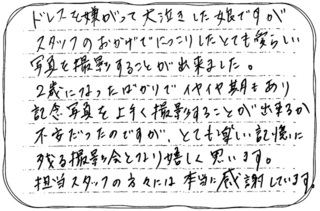 ドレスを嫌がって大泣きした娘ですが
スタッフのおかげでにっこりしたとても愛らしい
写真を撮影することが出来ました。
2歳になったばかりでイヤイヤ期もあり
記念写真を上手く撮影することが出来るか
不安だったのですが、とても楽しい記憶に
残る撮影会となり嬉しく思います。
担当スタッフの方々には本当に感謝しています。